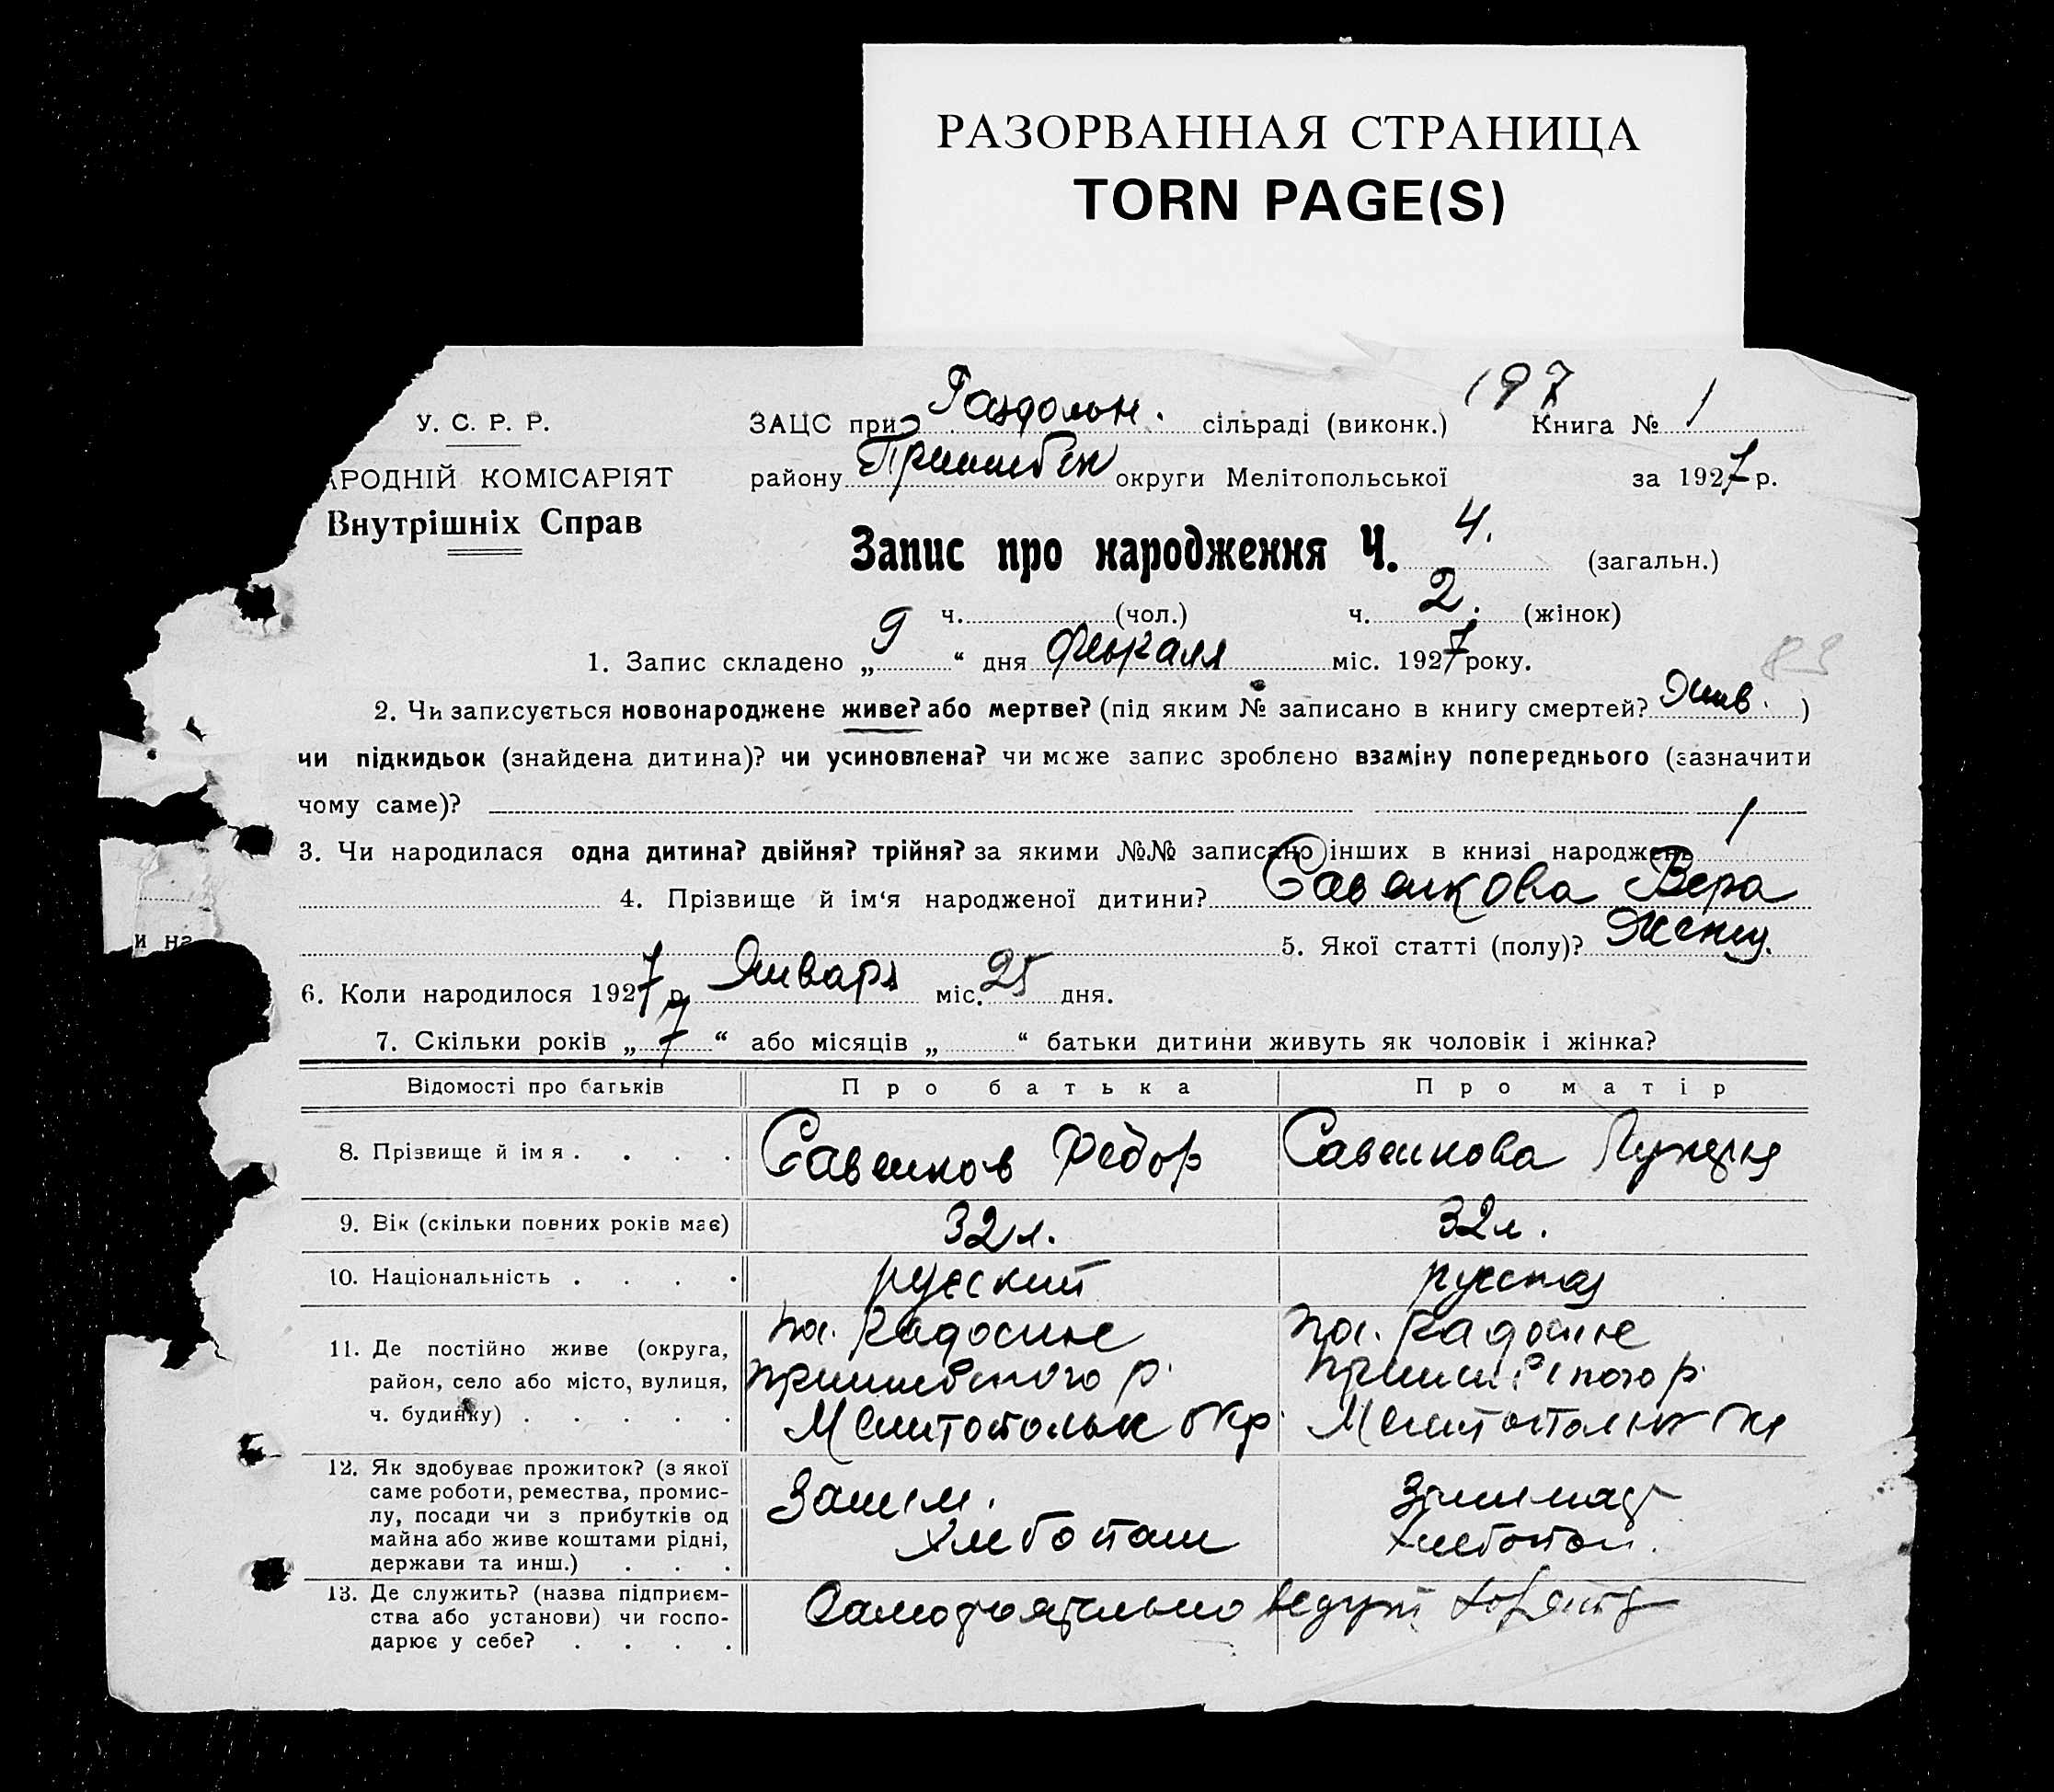 РАЗОРВАННАЯ СТРАНИЦА
TORN PAGE(S)
197
У. С. Р. Р.
ЗАЦС при Раздольн. сільраді (виконк.) Книга № 1
АРОДНІЙ КОМІСАРІЯТ
Внутрішніх Справ
району Пришибск округи Мелітопольської за 1927 р.
Запис про народження Ч. 4. (загальн.)
ч. (чол.) ч. 2. (жінок)
1. Запис складено „9“ дня Февраля міс. 1927 року.
83
2. Чи записується новонароджене живе? або мертве? (під яким № записано в книгу смертей? Жив. )
чи підкидьок (знайдена дитина)? чи усиновлена? чи може запис зроблено взаміну попереднього (зазначити
чому саме)?
3. Чи народилася одна дитина? двійня? трійня? за якими №№ записано інших в книзі народжень 1
4. Прізвище й ім‘я народженої дитини? Савенкова Вера
и на
5. Якої статті (полу)? Женщ.
6. Коли народилося 1927 р. Января міс. 25 дня.
7. Скільки років „7“ або місяців „ “ батьки дитини живуть як чоловік і жінка?
Відомості про батьків Про батька Про матір
8. Прізвище й імя . . . . Савенков Федор Савенкова
9. Вік (скільки повних років має) 32 л. 32 л.
10. Національність . . . . русский русская
11. Де постійно живе (округа,
район, село або місто, вулиця,
ч. будинку) . . . . .
пос. Радосне
Пришибского р.
Мелитопольск окр.
пос. Радосне
Пришибского р.
Мелитопольск окр
12. Як здобуває прожиток? (з якої
саме роботи, ремества, промис-
лу, посади чи з прибутків од
майна або живе коштами рідні,
держави та инш.) . . .
Заним.
Хлебопаш
Хлебопаш.
13. Де служить? (назва підприєм-
ства або установи) чи госпо-
дарює у себе? . . . .
Самостоятельно ведут